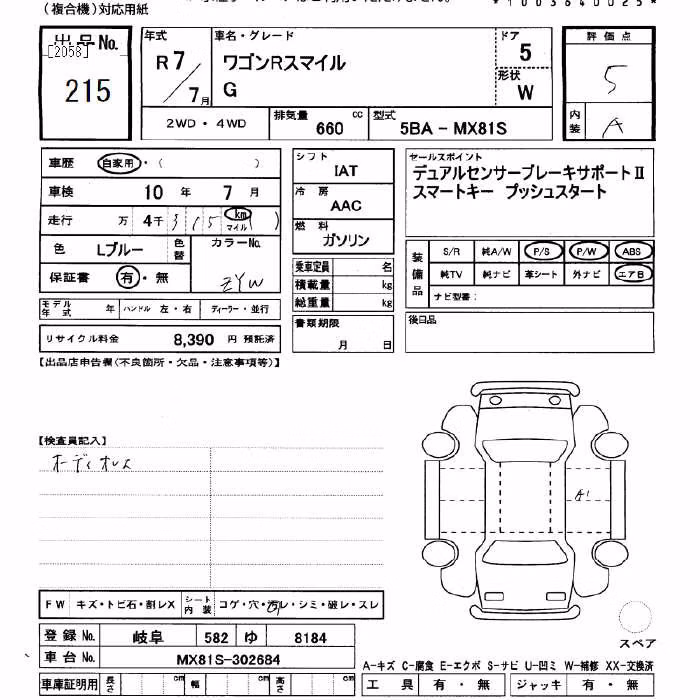 (複合機)対応用紙
*1003640025*
出品No.
[2058]
215
年式
R7/7月
車名・グレード
ワゴンRスマイル
G
ドア
5
形状
W
評価点
5
内装
A
2WD・4WD
排気量 660 cc
型式 5BA - MX81S
車歴 自家用・( )
車検 10年 7月
走行 万 4千 315 (km マイル)
色 Lブルー 色替
カラーNo.
ZYW
保証書 有・無
モデル年式 年 ハンドル 左・右 ディーラー・並行
リサイクル料金 8,390 円 預託済
シフト
IAT
冷房
AAC
燃料
ガソリン
乗車定員 名
積載量 kg
総重量 kg
書類期限
月 日
セールスポイント
デュアルセンサーブレーキサポートⅡ
スマートキー プッシュスタート
装備品
S/R 純A/W P/S P/W ABS
純TV 純ナビ 革シート 外ナビ エアB
ナビ型番:
後日品
【出品店申告欄(不良箇所・欠品・注意事項等)】
【検査員記入】
オーディオレス
A1
FW キズ・トビ石・割レX シート内装 コゲ・穴・汚レ・シミ・破レ・スレ
登録No. 岐阜 582 ゆ 8184
車台No. MX81S-302684
車庫証明用 長さ cm 幅 cm 高さ cm
スペア
A-キズ C-腐食 E-エクボ S-サビ U-凹ミ W-補修 XX-交換済
工具 有・無 ジャッキ 有・無